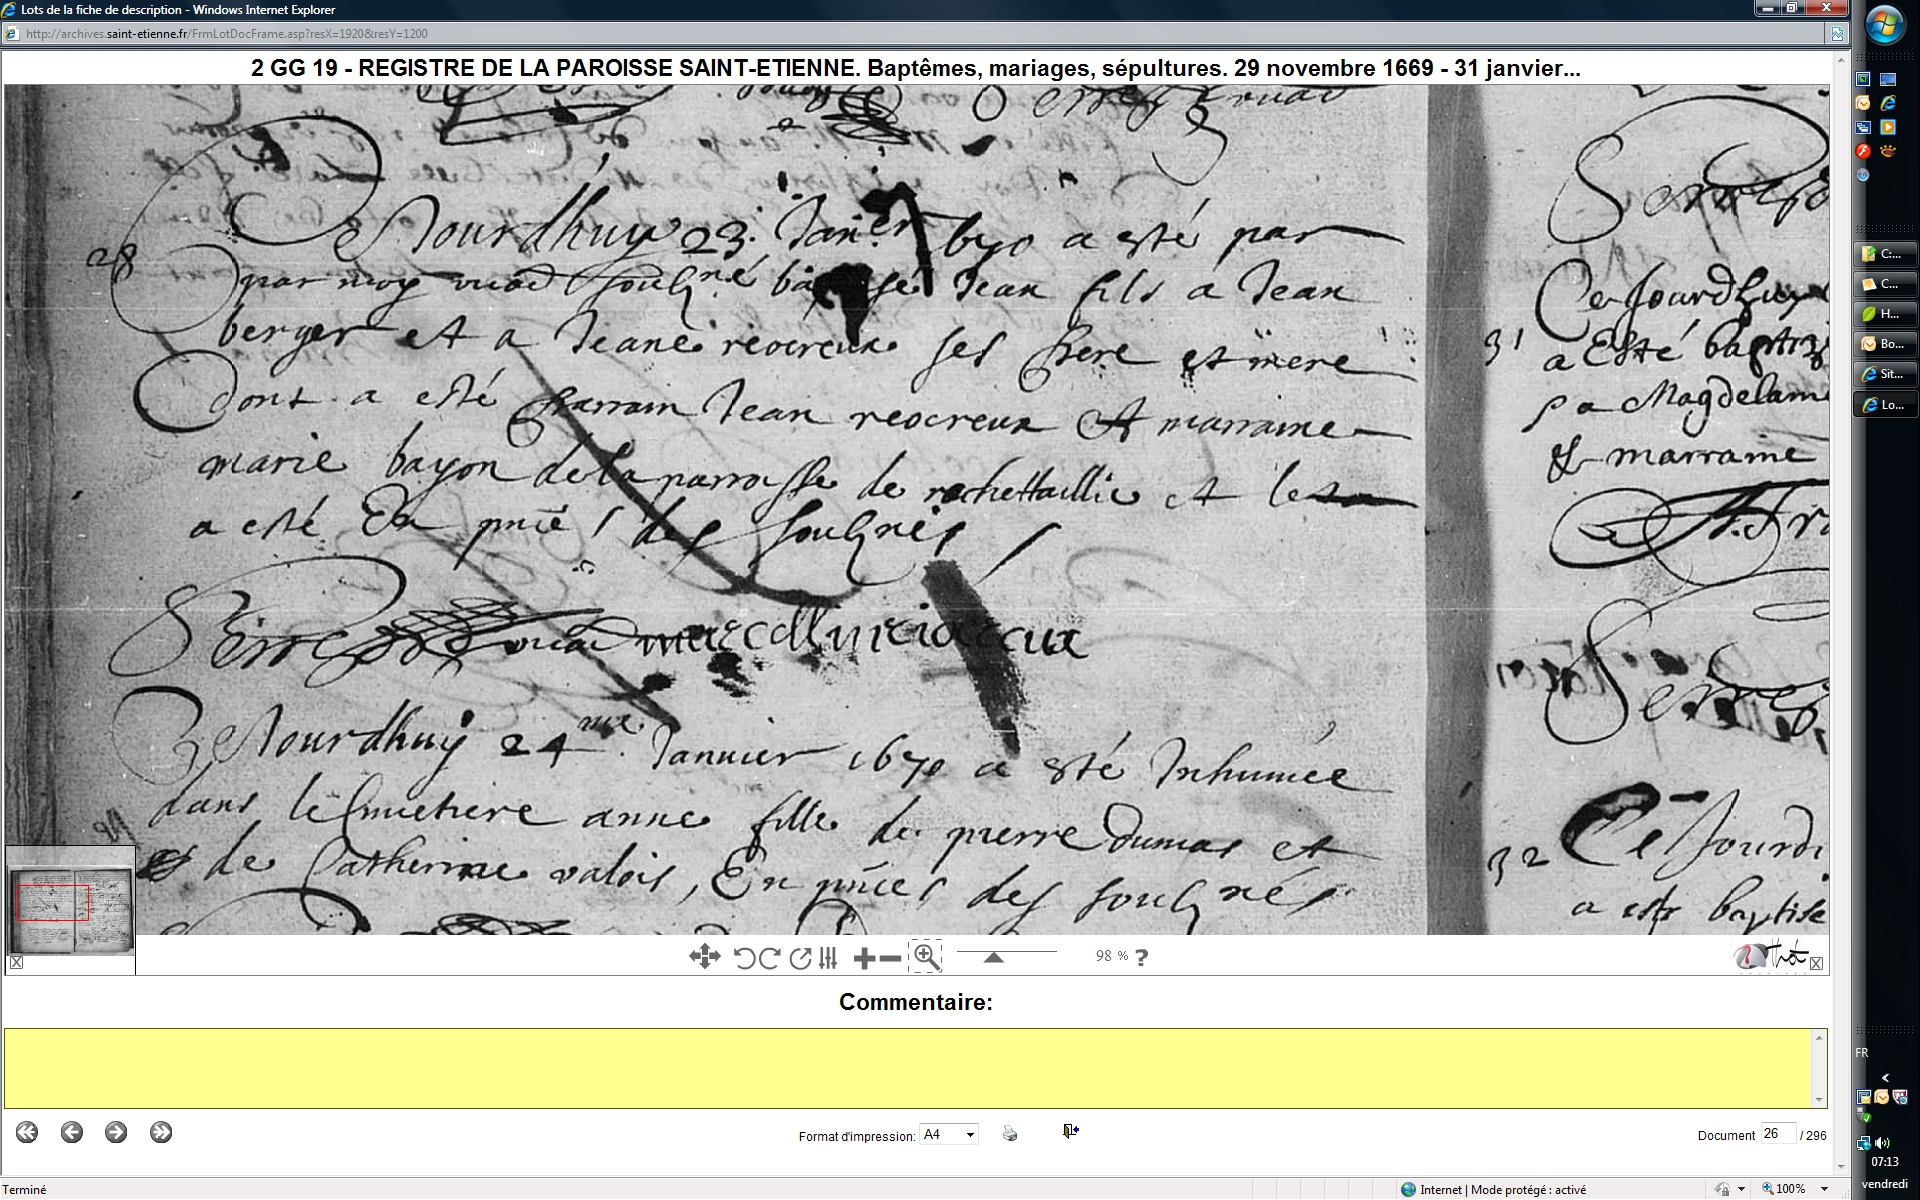 Lots de la fiche de description - Windows Internet Explorer
http://archives.saint-etienne.fr/FrmLotDocFrame.asp?resX=1920&resY=1200
2 GG 19 - REGISTRE DE LA PAROISSE SAINT-ETIENNE. Baptêmes, mariages, sépultures. 29 novembre 1669 - 31 janvier...
28
Ce Jourdhuy 23. Janer 1670 a esté par
par moy soubné Jean fils a Jean
berger et a Jeane reocreux ses pere et mere
dont a esté parrain Jean reocreux et marraine
marie bayon de la parroisse de rochettaillie et le
a esté En pnce des soubnés
Ce Jourdhuy 24me. Januier 1670 a esté Inhumée
dans le Cimetiere anne fille de pierre Dumas et
de Catherine valois, En pnces des soubnés
31
Ce Jourdhuy
a Esté baptiz
a Magdelaine
et marraine
32
Ce Jourd
a este baptise
98 % ?
Commentaire:
Format d'impression: A4
Document 26 / 296
Terminé
Internet | Mode protégé : activé
100%
C:...
C...
H...
Bo...
Sit...
Lo...
FR
07:13
vendredi